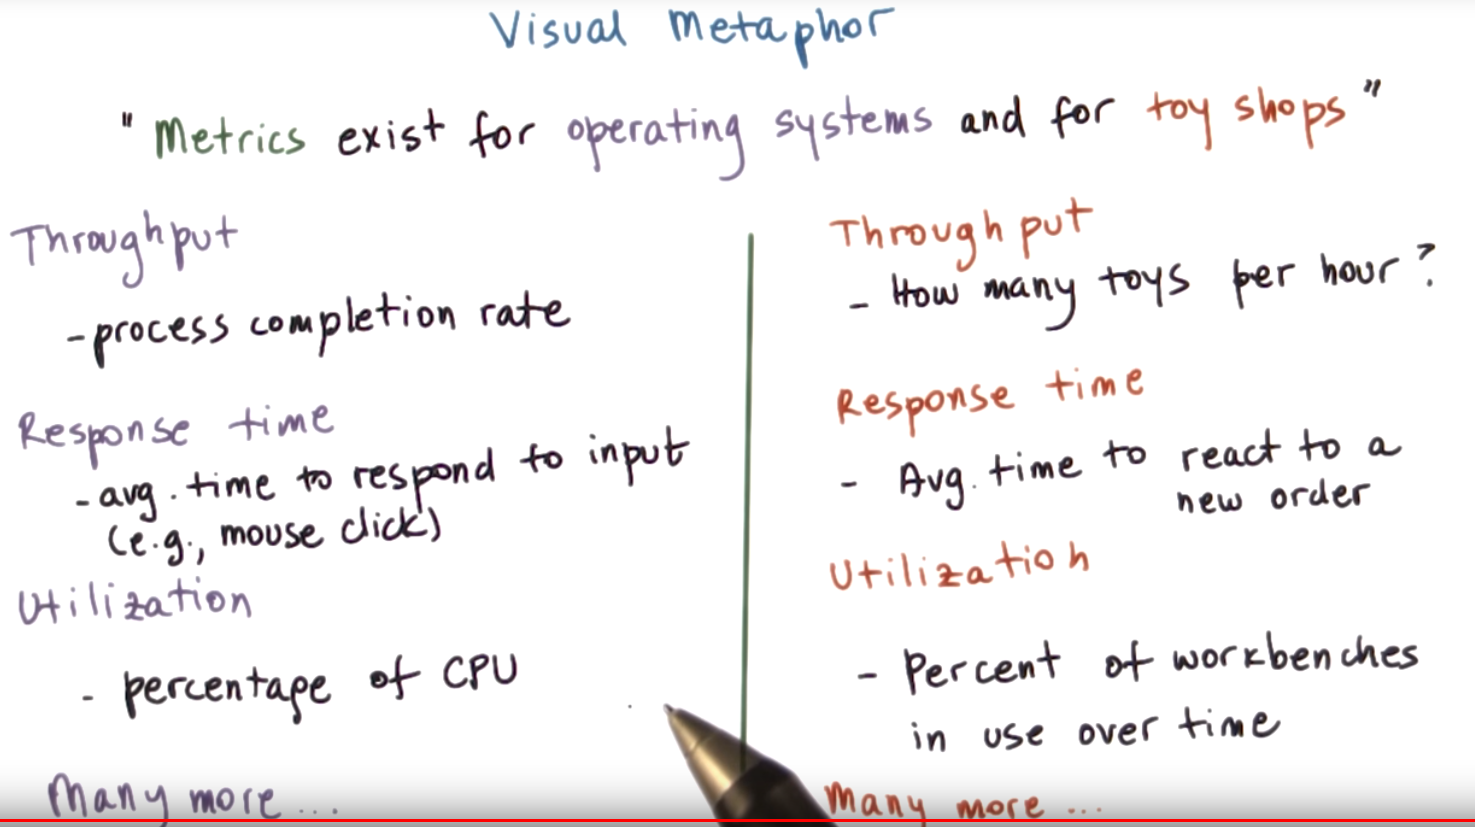 Visual Metaphor
"Metrics exist for operating systems and for toy shops"
Throughput
- process completion rate
Response time
- avg. time to respond to input
(e.g., mouse click)
Utilization
- percentage of CPU
Many more...
Throughput
- How many toys per hour?
Response time
- Avg. time to react to a
new order
Utilization
- Percent of workbenches
in use over time
Many more...